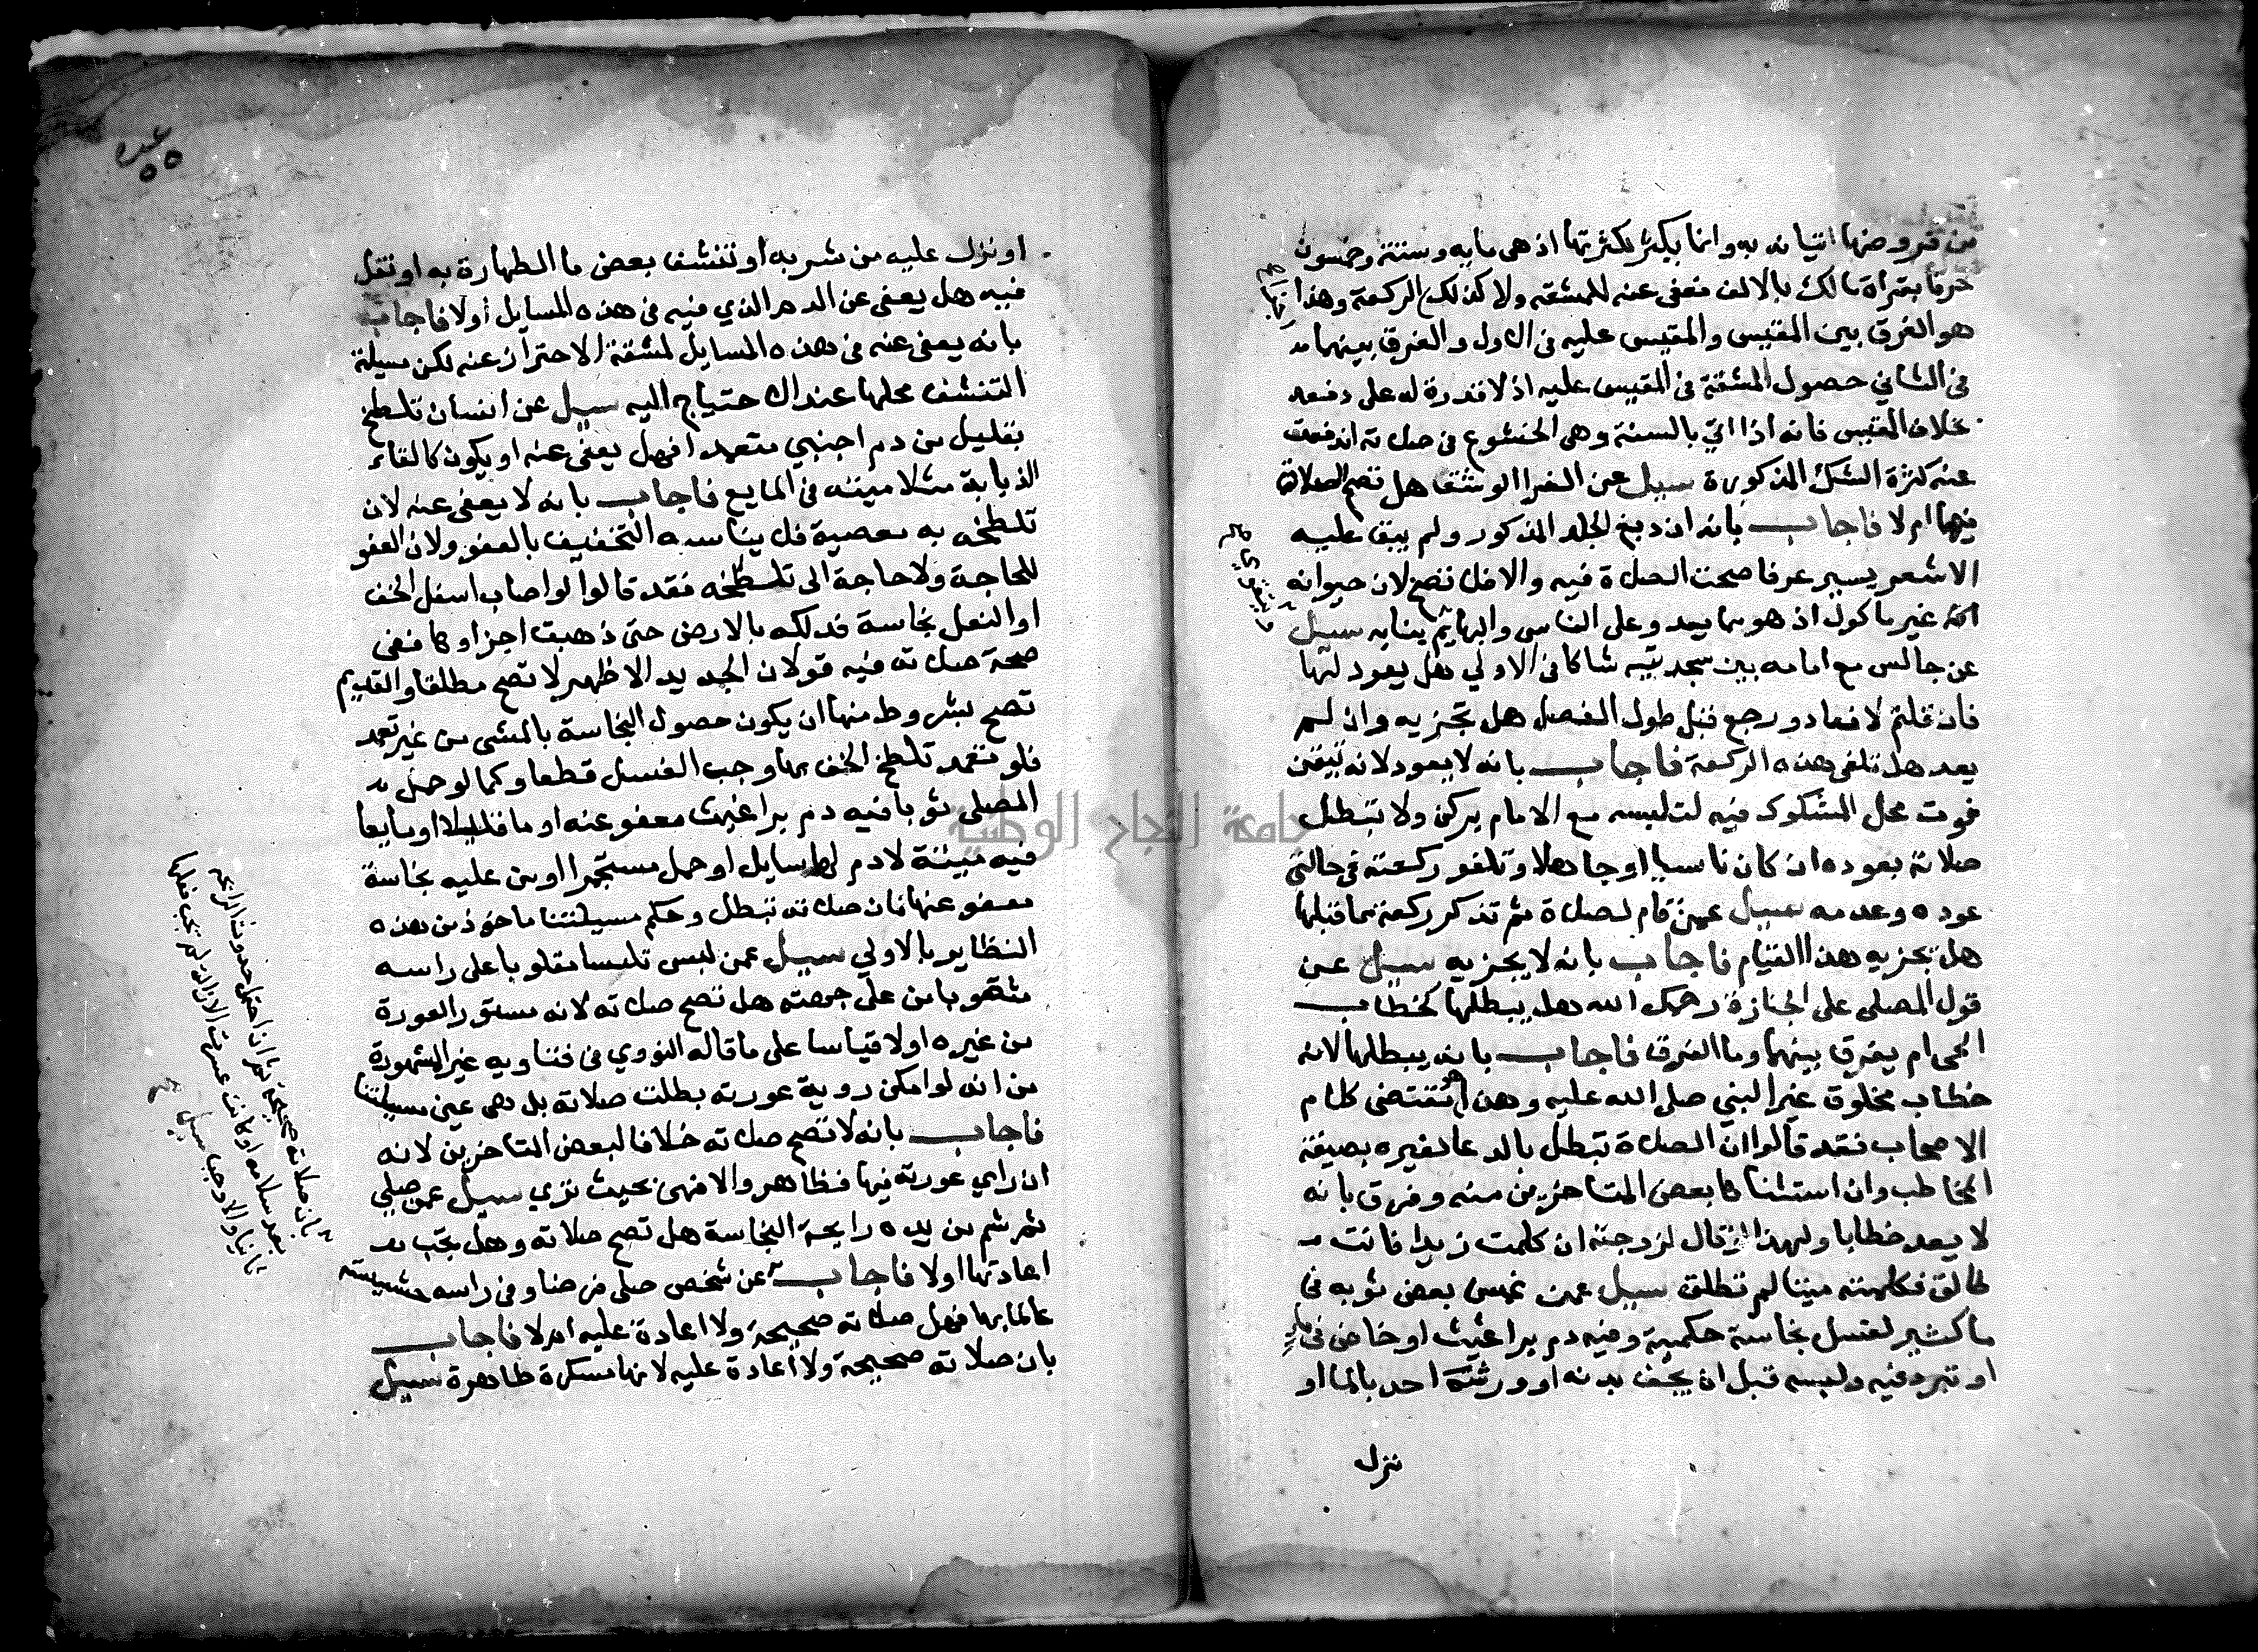 من فروضها اتيانه به وانما يكثر لكثرتها اذ هى مايه وستة وخمسون
حرفا بقراة مالك بالالف فعفى عنه للمشقة ولا كذلك الركعة وهذا
هو الفرق بين المقيس والمقيس عليه فى الاول والفرق بينهما
فى الثاني حصول المشقة فى المقيس عليه اذ لا قدرة له على دفعه
بخلاف المقيس فانه اذا اتى بالسنة وهى الخشوع فى صلاته اندفعت
عنه كثرة الشك المذكورة سيل عن الفرا الوشق هل تصح الصلاة
فيها ام لا فاجاب بانه ان دبغ الجلد المذكور ولم يبق عليه
الا شعر يسير عرفا صحت الصلاة فيه والا فلا تصح لان حيوانه
غير ماكول اذ هو مما يعدو على الناس والبهايم بنابه سيل
عن جالس مع امامه بين سجدتيه شاكا فى الاولي هل يعود لها
فان قلتم لا فعاد ورجع قبل طول الفصل هل تجزيه وان لم
يعد هل تلغى هذه الركعة فاجاب بانه لا يعود لانه تيقن
فوت محل المشكوك فيه لتلبسه مع الامام بركن ولا تبطل
صلاته بعوده ان كان ناسيا او جاهلا وتلغو ركعته فى حالتي
عوده وعدمه سيل عمن قام لصلاة ثم تذكر ركعة مما قبلها
هل يجزيه هذا القيام فاجاب بانه لا يجزيه سيل عن
قول المصلي على الجنازة رحمك الله هل يبطلها كخطاب
الحى ام يفرق بينهما وما الفرق فاجاب بانه يبطلها لانه
خطاب مخلوق غير النبي صلى الله عليه وهذا مقتضى كلام
الاصحاب فقد قالوا ان الصلاة تبطل بالدعا لغيره بصيغة
المخاطب وان استثنا كا بعض المتاخرين منه وفرق بانه
لا يعد خطابا ولهذا لو قال لزوجته ان كلمت زيدا فانت
طالق فكلمته ميتا لم تطلق سيل عمن غمس بعض ثوبه فى
ما كثير لغسل نجاسة حكمية وفيه دم براغيث او خاض فى
او تبرد فيه ولبسه قبل ان يجف بدنه او ورشه احد بالما او
نزل
او نزل عليه من شربه او تنشف بعض ما الطهارة به او تقل
فيه هل يعفى عن الدم الذي فيه فى هذه المسايل أولا فاجاب
بانه يعفى عنه فى هذه المسايل لمشقة الاحتراز عنه لكن مسيلة
التنشف محلها عند الاحتياج اليه سيل عن انسان تلطخ
بقليل من دم اجنبي متعمدا فهل يعفى عنه او يكون كالقاء
الذبابة مثلا ميتة فى المايع فاجاب بانه لا يعفى عنه لان
تلطخه به معصية فلا يناسبه التخفيف بالعفو ولان العفو
للحاجة ولا حاجة الى تلطخه فقد قالوا لو اصاب اسفل الخف
او النعل نجاسة فدلكه بالارض حتى ذهبت اجزاوها ففى
صحة صلاته فيه قولان الجديد الاظهر لا تصح مطلقا والقديم
تصح بشروط منها ان يكون حصول النجاسة بالمشى من غير تعمد
فلو تعمد تلطخ الخف بها وجب الغسل قطعا وكما لو حمل
المصلى ثوبا فيه دم براغيث معفو عنه او ما قليلا او مايعا
فيه ميتة لا دم لها سايل او حمل مستجمرا او من عليه نجاسة
معفو عنها فان صلاته تبطل وحكم مسيلتنا ماخوذ من هذه
النظاير بالاولي سيل عمن لبس تلمسا مقلوبا على راسه
مثقوبا من على جبهته هل تصح صلاته لانه مستور العورة
من غيره اولا قياسا على ما قاله النووي فى فتاويه غير المشهورة
من انه لو امكن روية عورته بطلت صلاته بل هى عين مسيلتنا
فاجاب بانه لا تصح صلاته خلافا لبعض المتاخرين لانه
ان راي عورته فيها فظاهر والا فهى بحيث ترى سيل عمن صلى
ثم شم من يده رايحة النجاسة هل تصح صلاته وهل يجب
اعادتها اولا فاجاب عن شخص صلى فرضا وفى راسه حشيشة
عالما بها فهل صلاته صحيحة ولا اعادة عليه ام لا فاجاب
بان صلاته صحيحة ولا اعادة عليه لانها مسكرة طاهرة سيل
بان صلاته صحيحة ثم ان احتمل حدوث الرايحة
بعد سلامه او كانت عسرة الازالة لم تجب فعلها
ثانيا والا وجب سيل
جامعة النجاح الوطنية